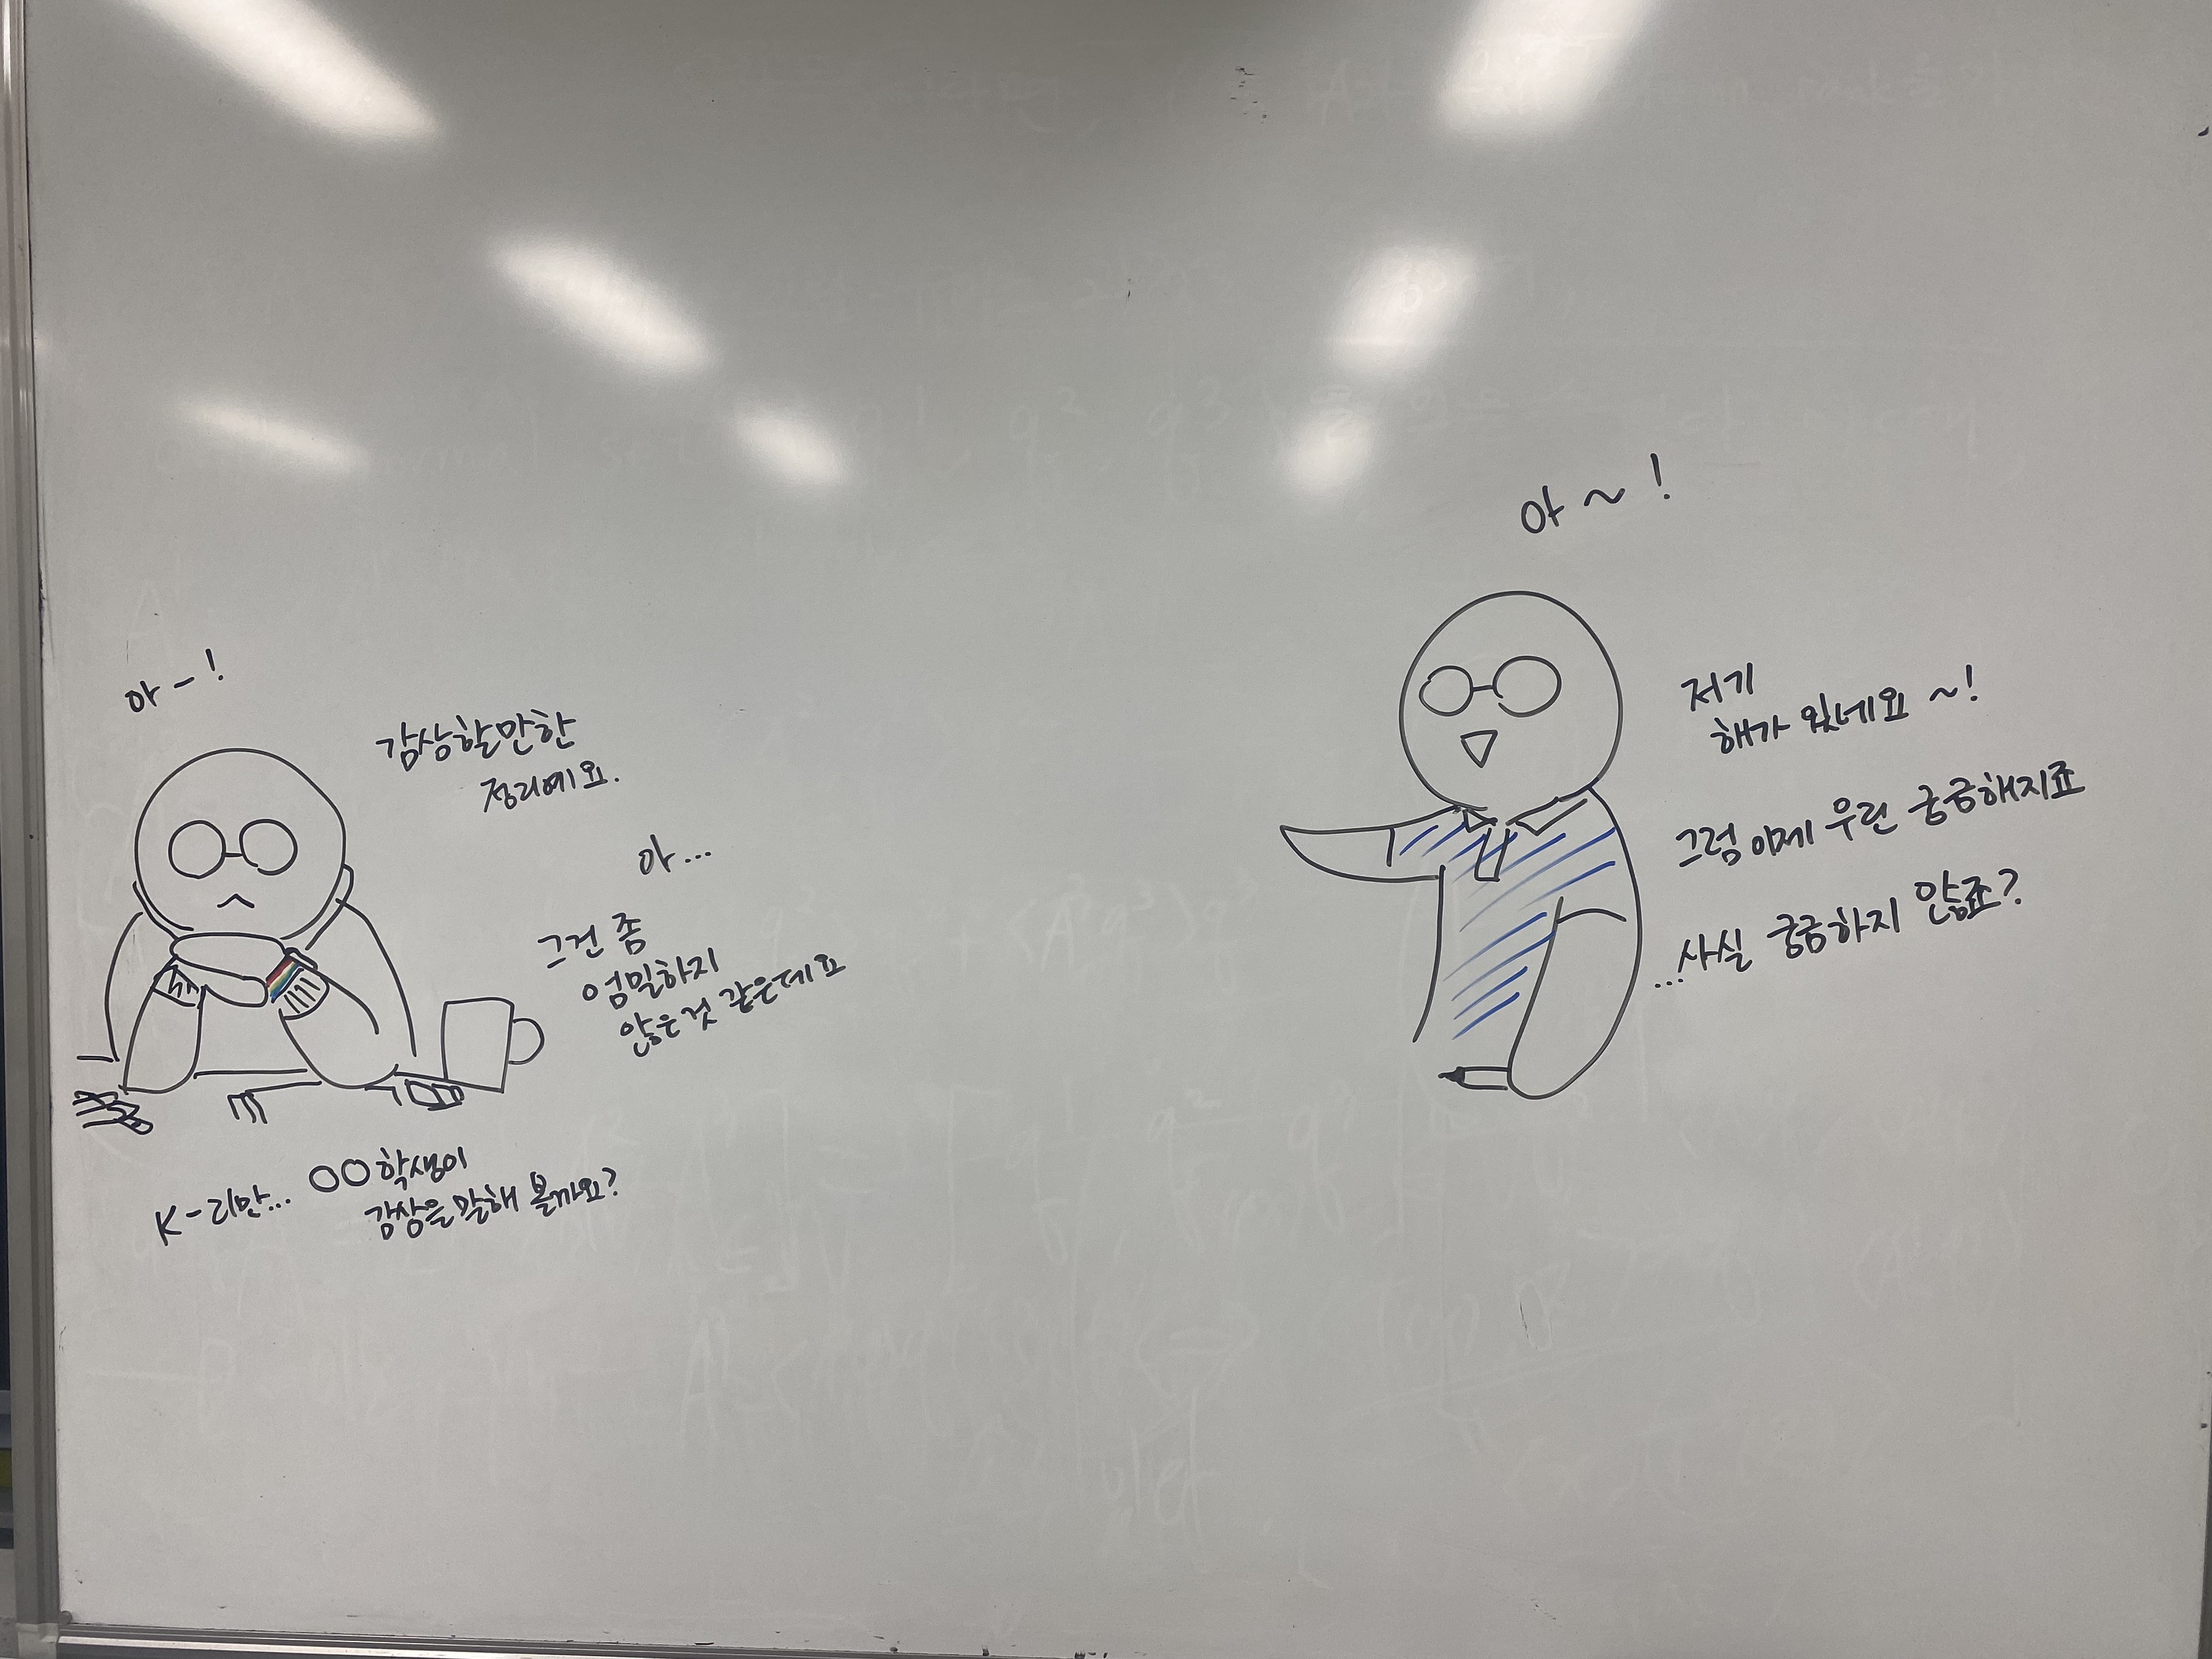 아 - !
감상할만한
정리예요.
아...
그건 좀
엄밀하지
않은것 같은데요
K-리만...
○○학생이
감상을 말해 볼까요?
아 ~ !
저기
해가 있네요 ~!
그럼 이제 우린 궁금해지죠
...사실 궁금하지 않죠?